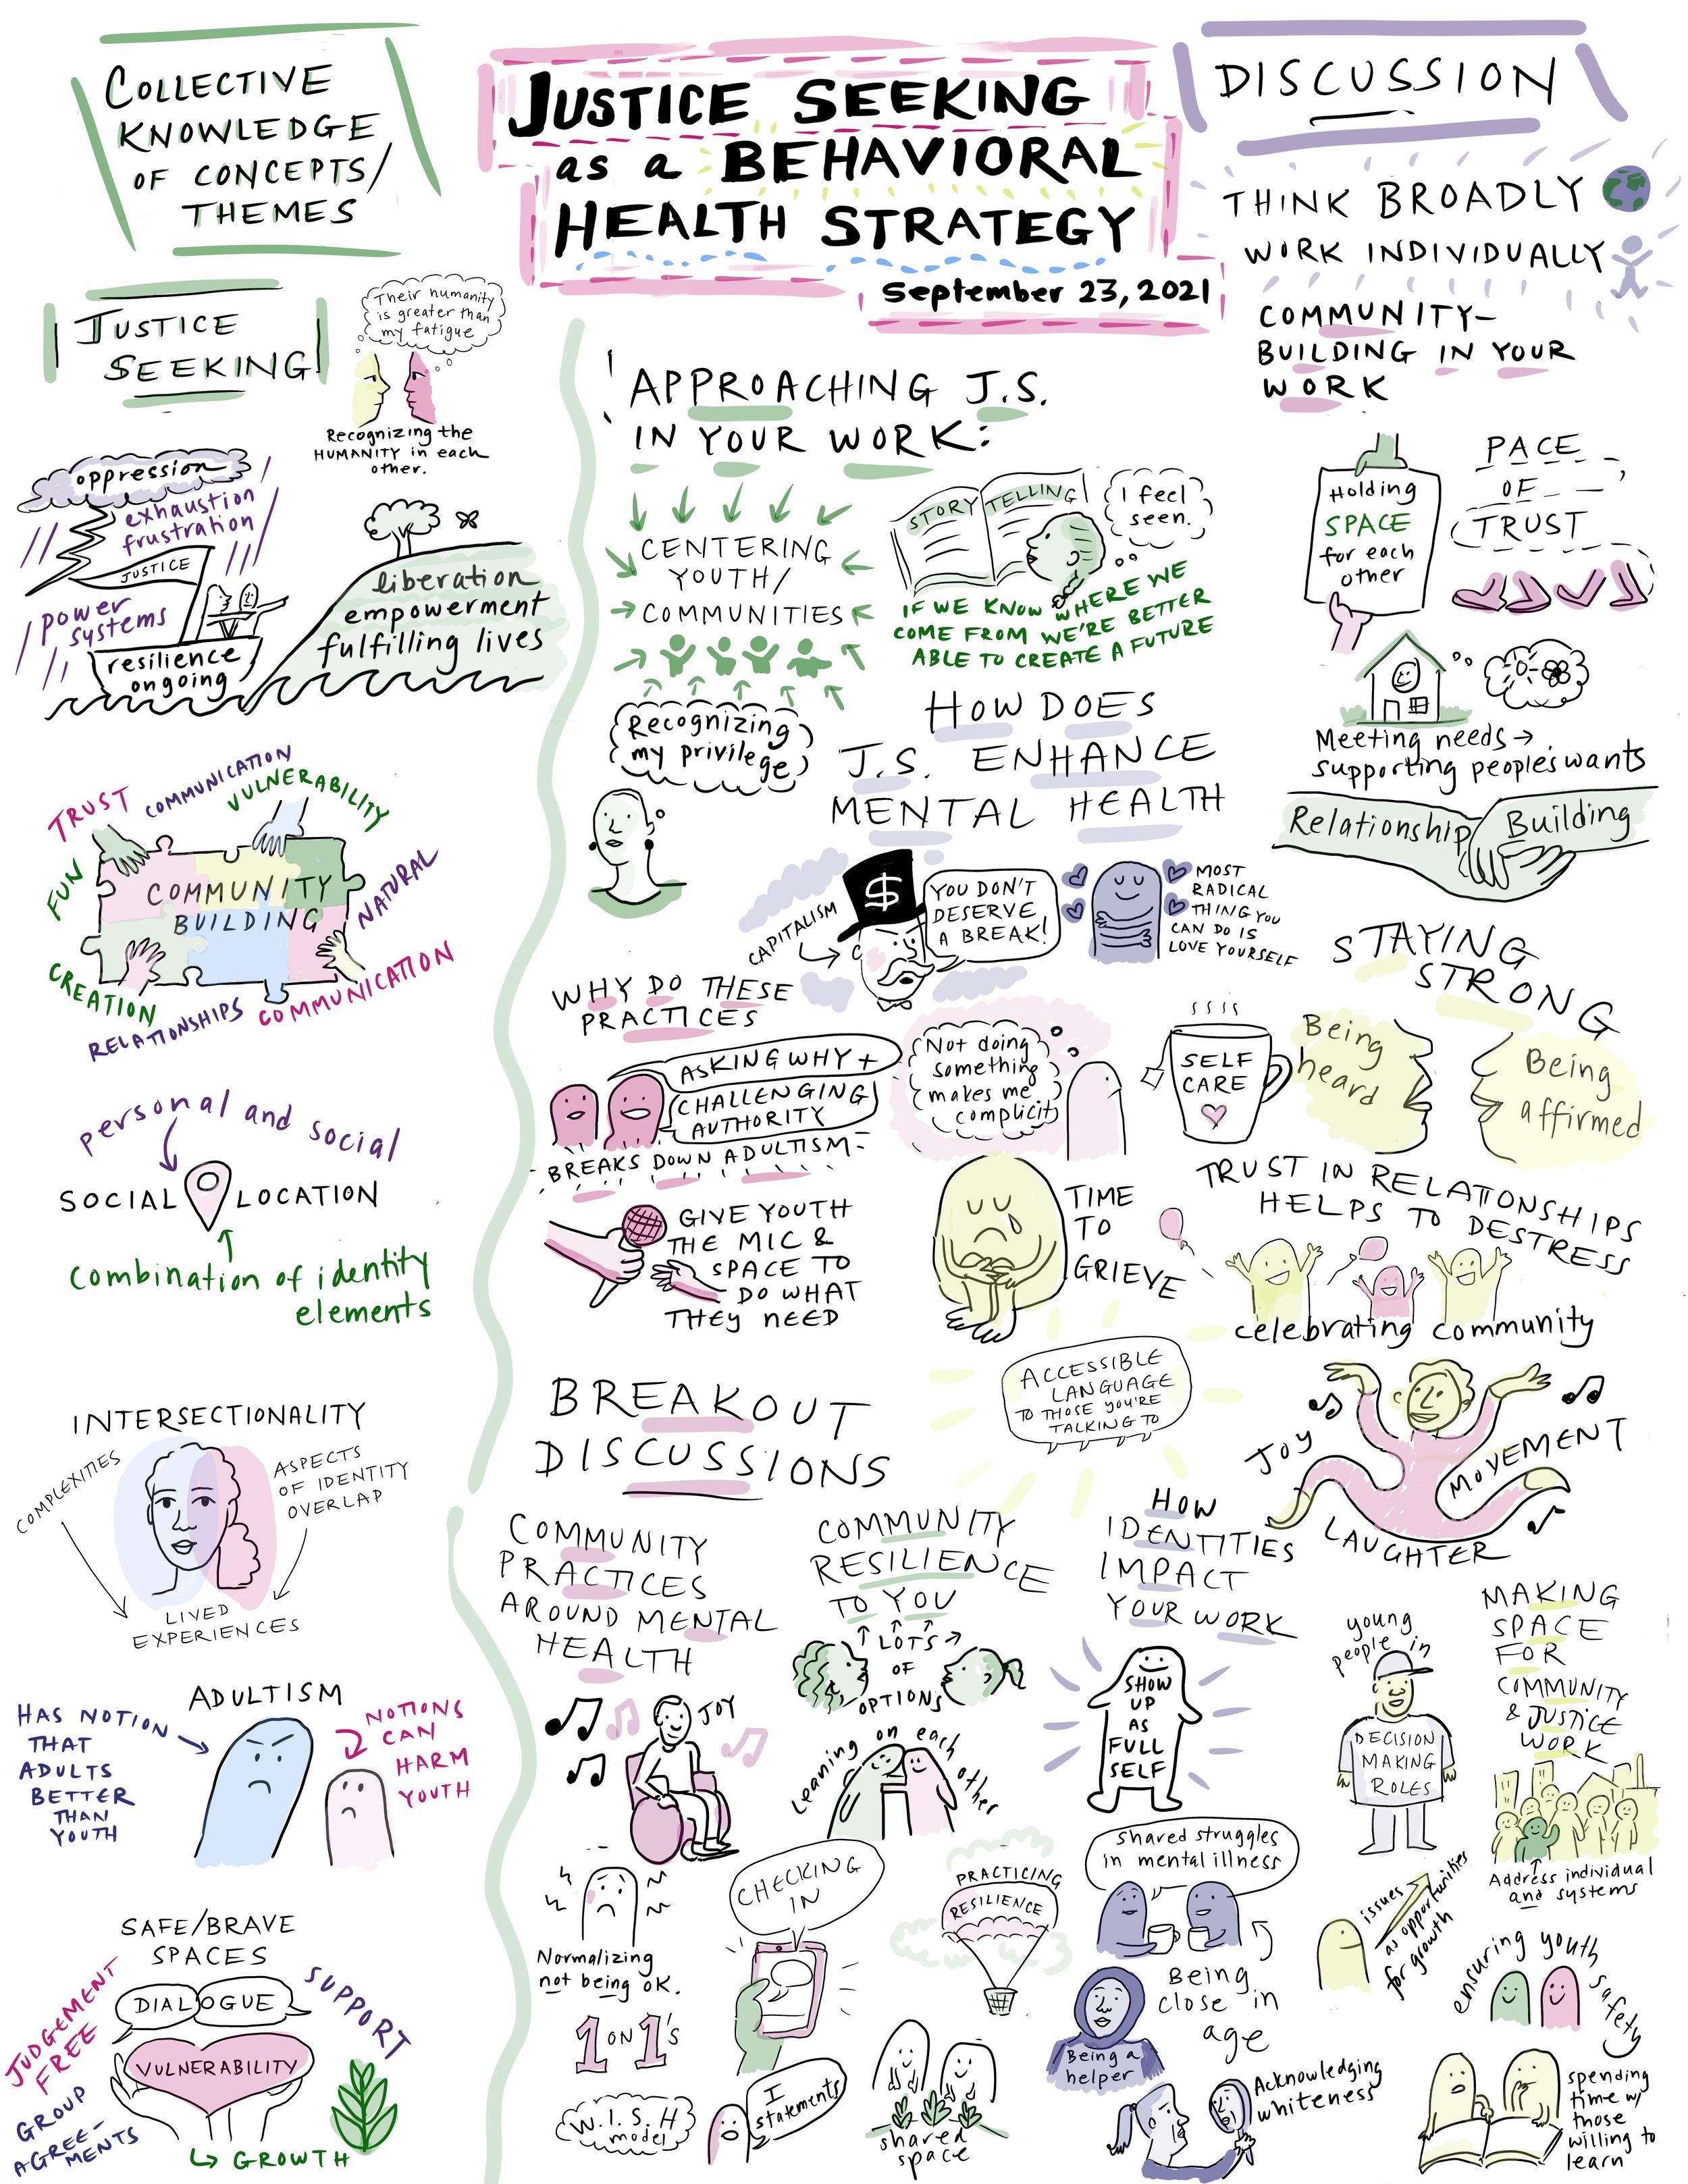 COLLECTIVE
KNOWLEDGE
OF CONCEPTS/
THEMES
JUSTICE SEEKING
as a BEHAVIORAL
HEALTH STRATEGY
September 23, 2021
DISCUSSION
THINK BROADLY
WORK INDIVIDUALLY
COMMUNITY-
BUILDING IN YOUR
WORK
JUSTICE
SEEKING
Their humanity
is greater than
my fatigue
Recognizing the
HUMANITY in each
other.
oppression
exhaustion
frustration
JUSTICE
power
systems
resilience
ongoing
liberation
empowerment
fulfilling lives
TRUST
COMMUNICATION
VULNERABILITY
FUN
COMMUNITY
BUILDING
NATURAL
CREATION
RELATIONSHIPS
COMMUNICATION
personal and social
SOCIAL LOCATION
Combination of identity
elements
INTERSECTIONALITY
COMPLEXITIES
ASPECTS
OF IDENTITY
OVERLAP
LIVED
EXPERIENCES
ADULTISM
HAS NOTION
THAT
ADULTS
BETTER
THAN
YOUTH
NOTIONS
CAN
HARM
YOUTH
SAFE/BRAVE
SPACES
JUDGEMENT
FREE
DIALOGUE
SUPPORT
VULNERABILITY
GROUP
AGREE-
MENTS
GROWTH
APPROACHING J.S.
IN YOUR WORK:
CENTERING
YOUTH/
COMMUNITIES
STORY TELLING
I feel
seen.
IF WE KNOW WHERE WE
COME FROM WE'RE BETTER
ABLE TO CREATE A FUTURE
Recognizing
my privilege
HOW DOES
J.S. ENHANCE
MENTAL HEALTH
CAPITALISM
$
YOU DON'T
DESERVE
A BREAK!
MOST
RADICAL
THING YOU
CAN DO IS
LOVE YOURSELF
WHY DO THESE
PRACTICES
ASKING WHY +
CHALLENGING
AUTHORITY
-BREAKS DOWN ADULTISM-
Not doing
something
makes me
complicit
SELF
CARE
GIVE YOUTH
THE MIC &
SPACE TO
DO WHAT
THEY NEED
TIME
TO
GRIEVE
ACCESSIBLE
LANGUAGE
TO THOSE YOU'RE
TALKING TO
Holding
SPACE
for each
other
PACE
OF
TRUST
Meeting needs →
supporting people's wants
Relationship Building
STAYING
STRONG
Being
heard
Being
affirmed
TRUST IN RELATIONSHIPS
HELPS TO DESTRESS
celebrating community
JOY
MOVEMENT
LAUGHTER
BREAKOUT
DISCUSSIONS
COMMUNITY
PRACTICES
AROUND MENTAL
HEALTH
JOY
Normalizing
not being OK.
CHECKING
IN
1 ON 1'S
W.I.S.H
model
I
statements
COMMUNITY
RESILIENCE
TO YOU
LOTS
OF
OPTIONS
Leaning on each other
PRACTICING
RESILIENCE
shared
space
HOW
IDENTITIES
IMPACT
YOUR WORK
SHOW
UP
AS
FULL
SELF
shared struggles
in mental illness
Being
close in
age
Being a
helper
Acknowledging
whiteness
MAKING
SPACE
FOR
COMMUNITY
& JUSTICE
WORK
young
people in
DECISION
MAKING
ROLES
Address individual
and systems
issues
as opportunities
for growth
ensuring youth safety
spending
time w/
those
willing to
learn